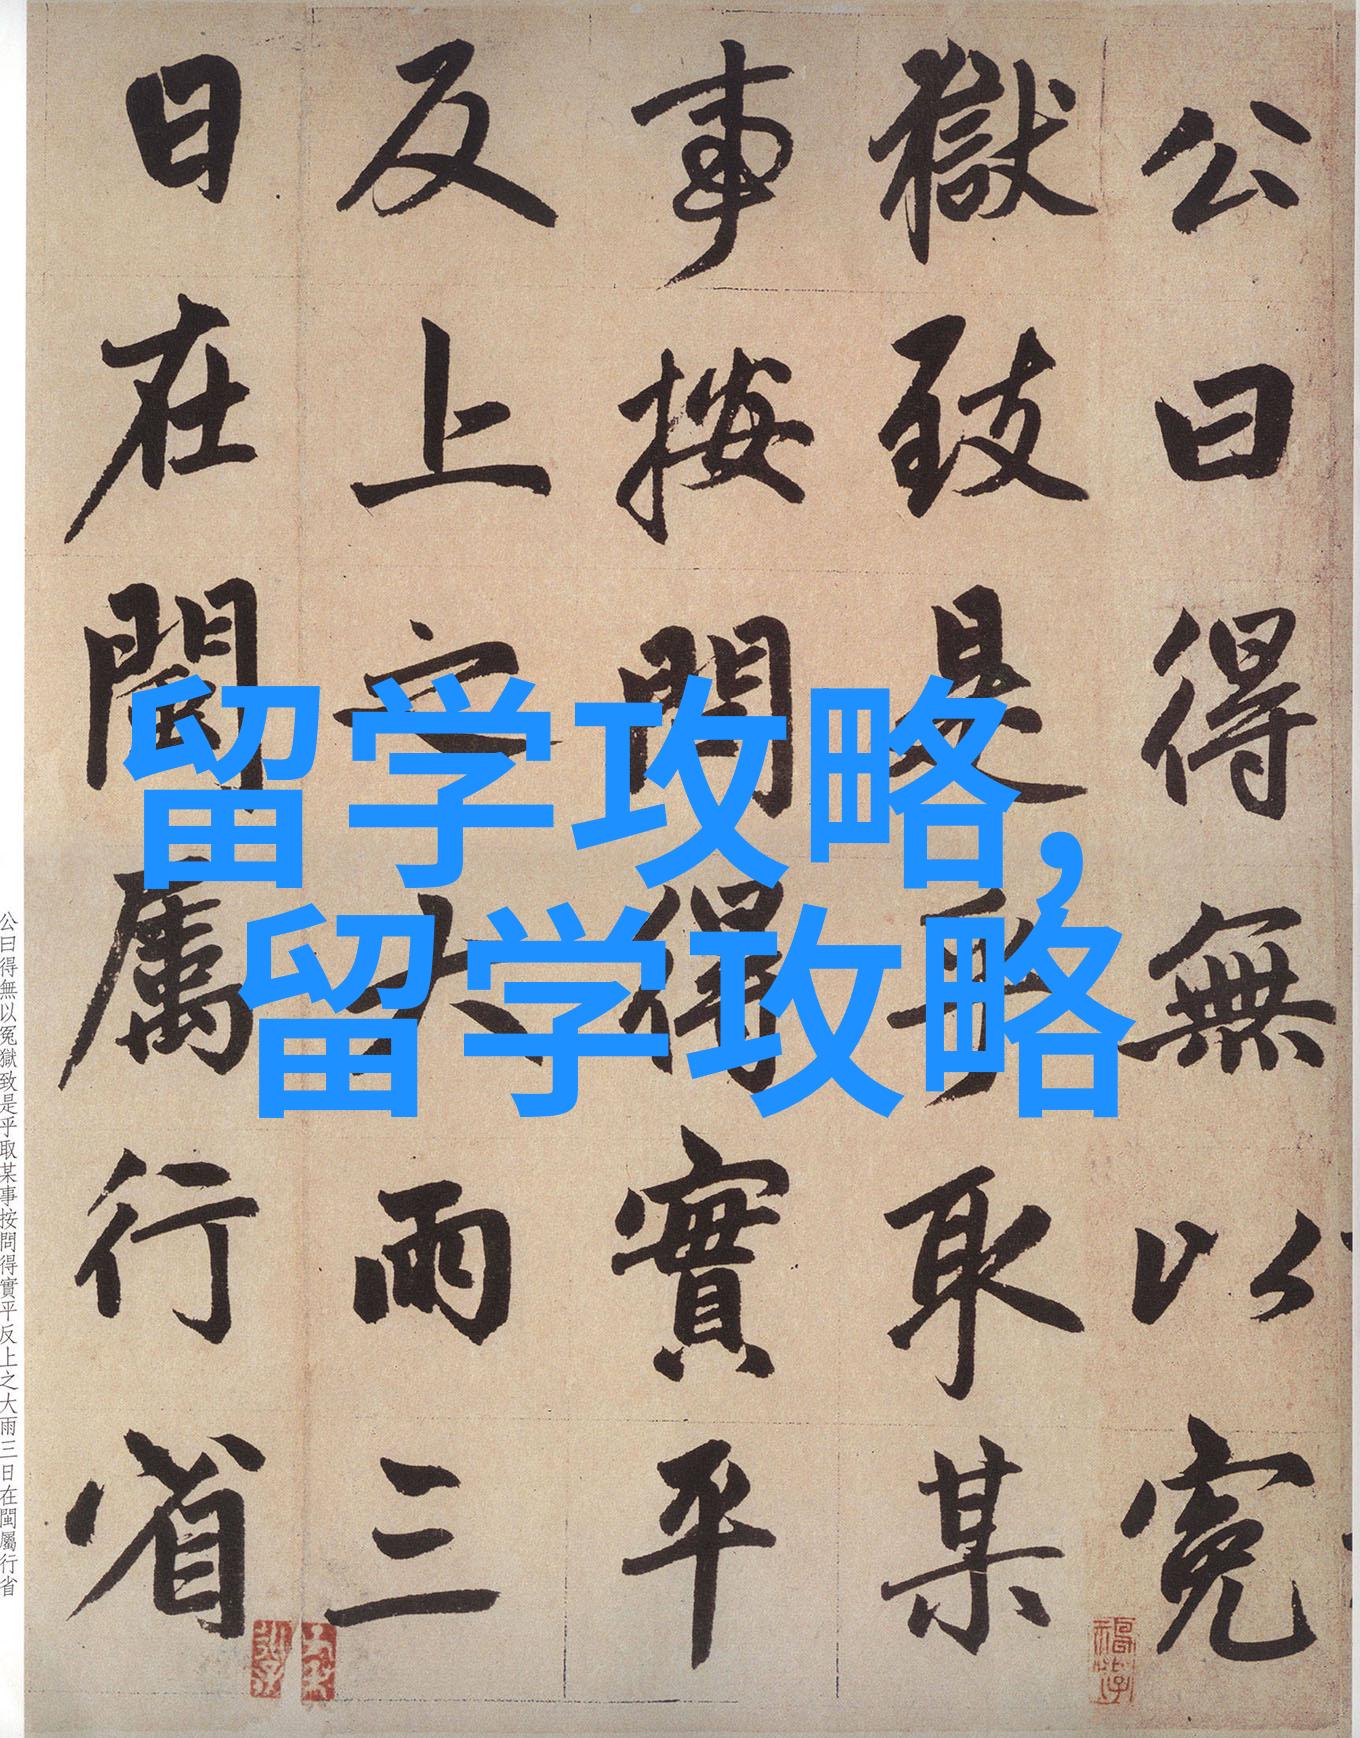 公曰得無以冤
獄致是乎取某
事按問得實平
反上之大雨三
日在閩屬行省
留学攻略,
留学攻略
公曰得無以冤獄致是乎取某事按問得實平反上之大雨三日在閩屬行省